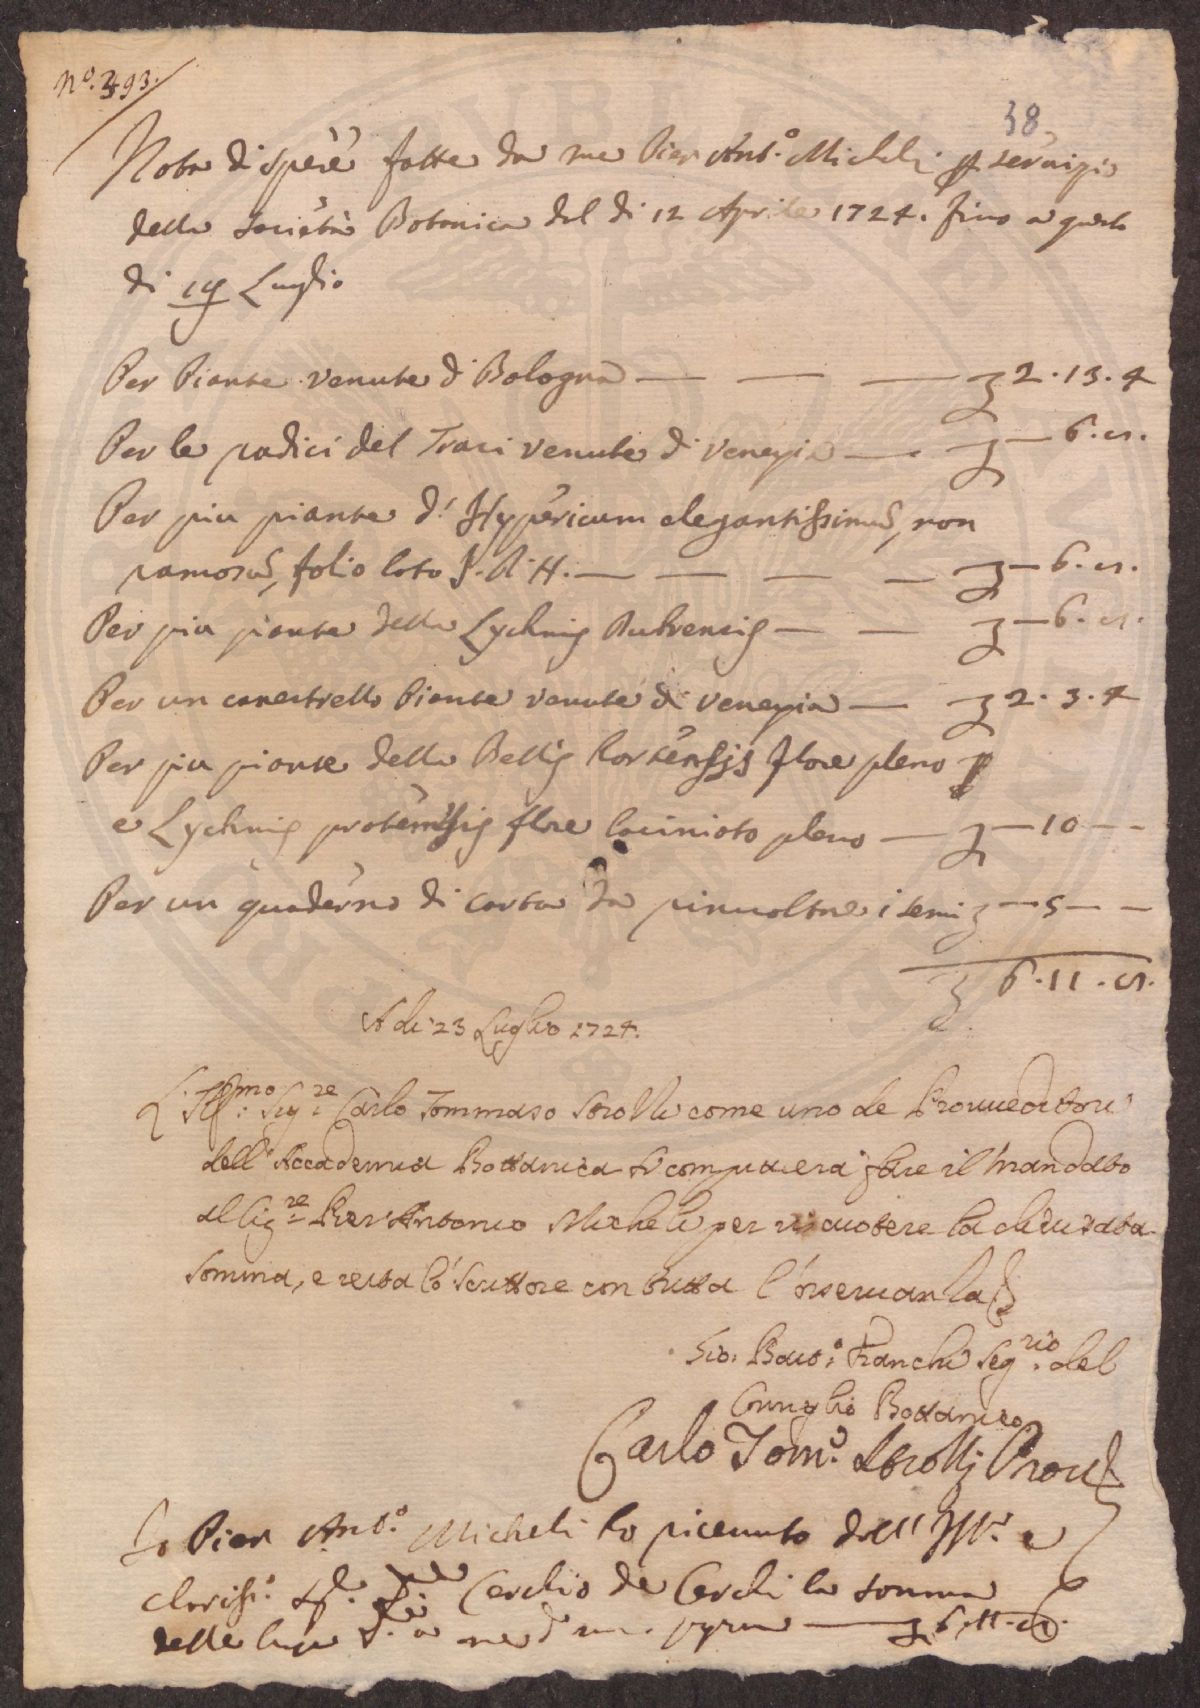 Nº. 393.
38
Nota di spese fatte da me Pier Ant.º Micheli servizio
della Società Botanica dal di 12 Aprile 1724. fino a questo
di 19 Luglio
Per Piante venute di Bologna — — — 2.13.4
Per le radici del Trasi venute di Venezia — — 6.8.
Per piu piante d' Hypericum elegantissimũ, non
ramosũ, folio lato J.R.H. — — — — — 6.8.
Per piu piante della Lychnis — — — 6.8.
Per un canestrello Piante venute di Venezia — 2.3.4
Per piu piante della Bellis hortensis flore pleno
e Lychnis pratensis flore laciniato pleno — — 10 — -
Per un quaderno di carta da rinvoltare i semi — 5 — -
6.11.8.
A di 23 Luglio 1724.
L'Ill.mo Sig.re Carlo Tommaso Strozzi come uno de Provveditori
dell' Accademia Bottanica si compiacerà fare il mandato
al Sig.re Pier' Antonio Micheli per riscuotere la
somma, e resta lo scrittore con tutta l'osservanza
Gio. Batt.ª Franchi Seg.rio del
Consiglio Bottanico
Carlo Tom.º Strozzi Prov.
Io Pier Ant.º Micheli ho ricevuto dall' Ill.º e
clariss.º Cerchio de Cerchi la somma
delle — 6.11.8.